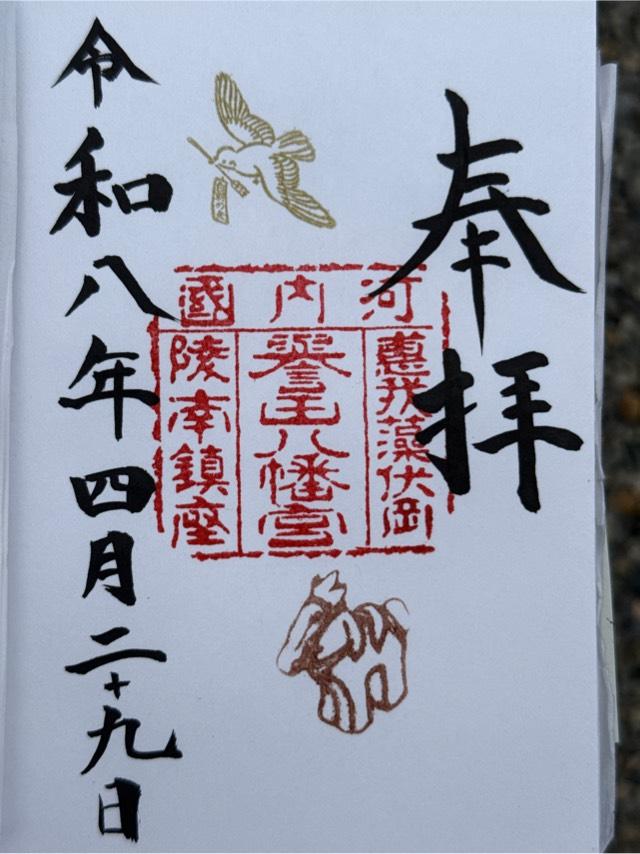 奉拝
河内國
惠我藻伏岡
誉田八幡宮
陵南鎮座
令和八年四月二十九日